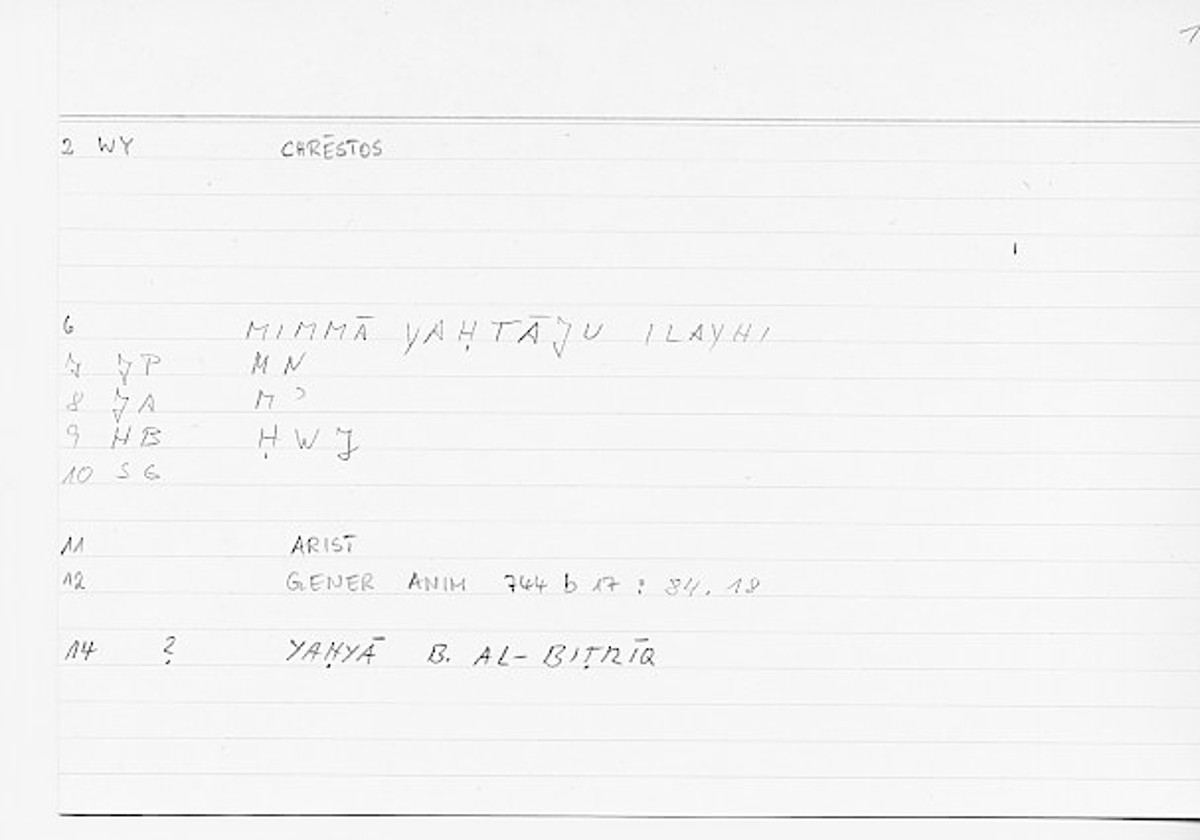 1
2 WY CHRĒSTOS
6 MIMMĀ YAḤTĀJU ILAYHI
7 JP MN
8 JA Mʾ
9 HB ḤWJ
10 SG
11 ARIST
12 GENER ANIM 744 b 17 : 84.18
14 ? YAḤYĀ B. AL-BIṬRĪQ